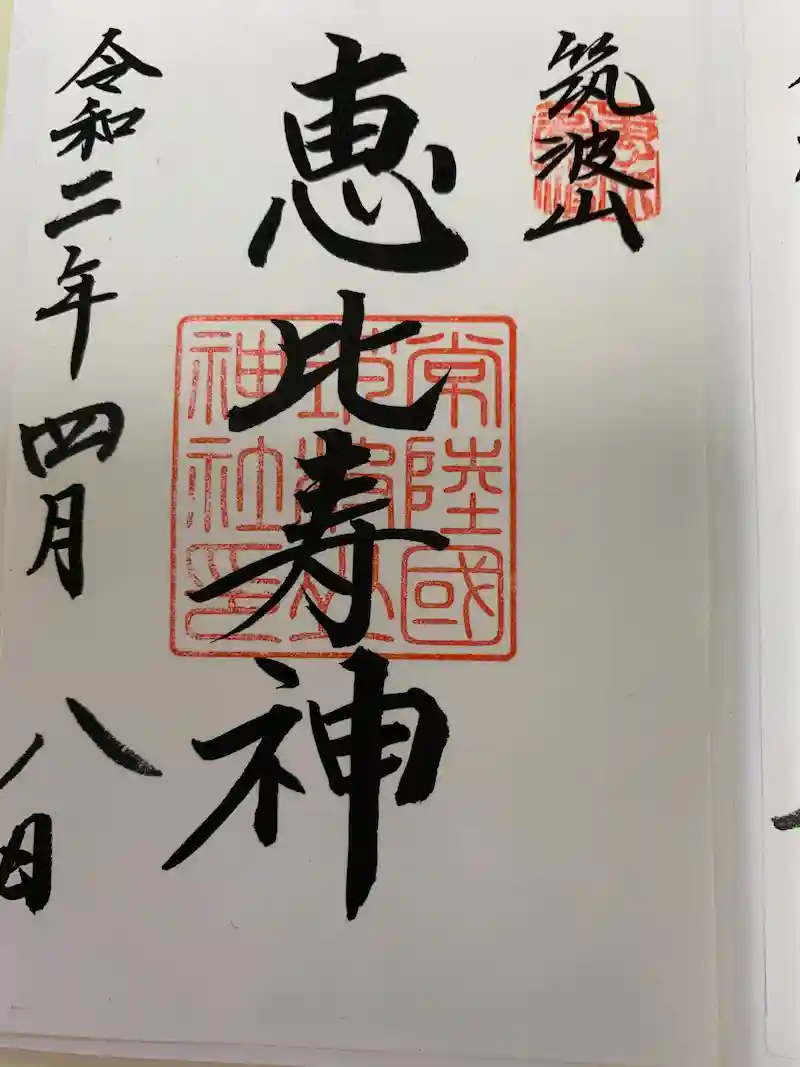 筑波山
恵比寿神
常陸國
筑波山
神社印
令和二年四月八日